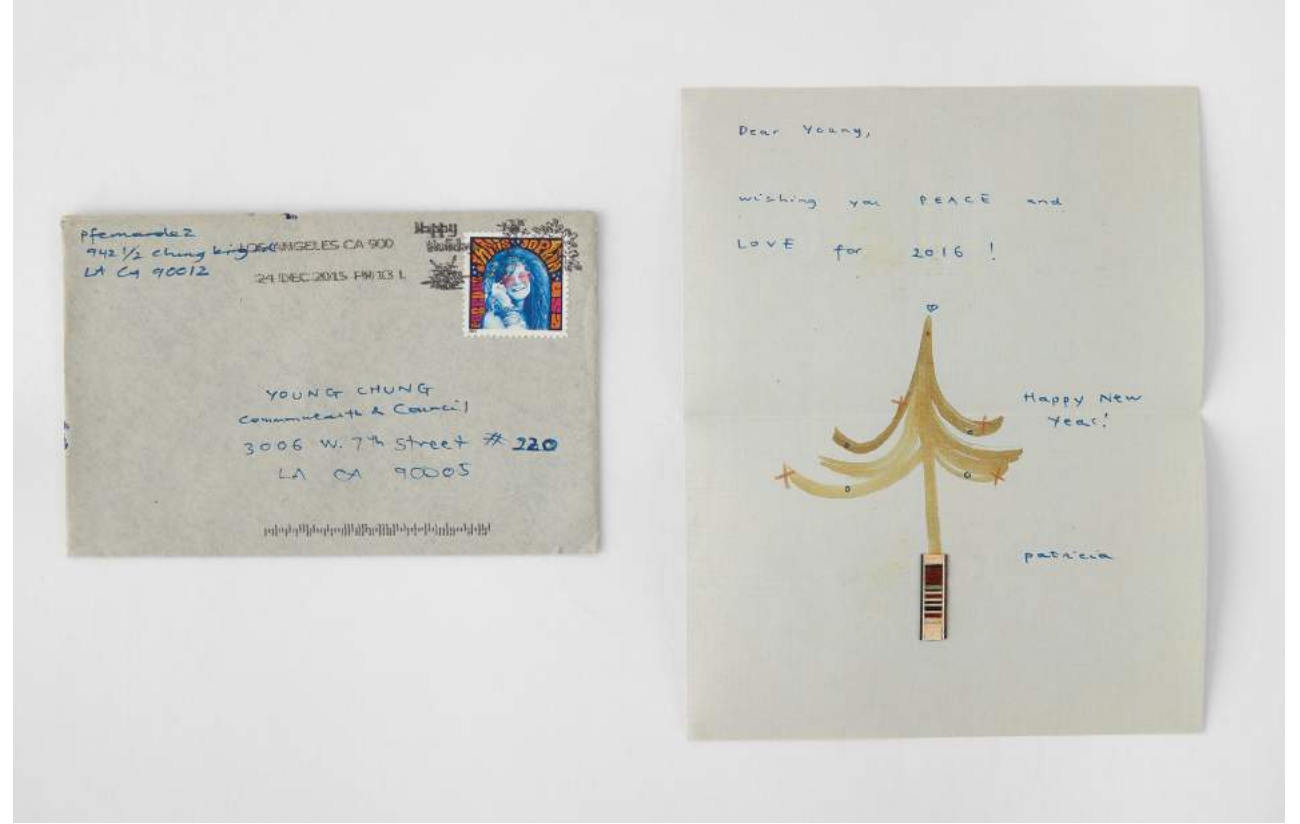 pfernandez
942 1/2 chung king rd
LA CA 90012
LOS ANGELES CA 900
24 DEC 2015 PM 13 L
Happy
Holidays
JANIS JOPLIN
YOUNG CHUNG
Commonwealth & Council
3006 W. 7th Street # 220
LA CA 90005
Dear Young,
wishing you PEACE and
LOVE for 2016 !
Happy New
Year!
patricia